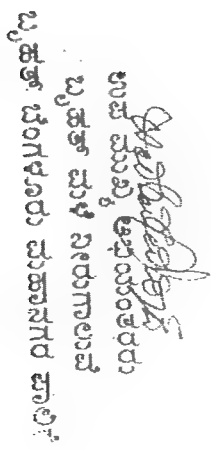 ಉಪ ಮುಖ್ಯ ಅಭಿಯಂತರರು
ಬೃಹತ್ ಮಳೆ ನೀರುಗಾಲುವೆ
ಬೃಹತ್ ಬೆಂಗಳೂರು ಮಹಾನಗರ ಪಾಲಿ